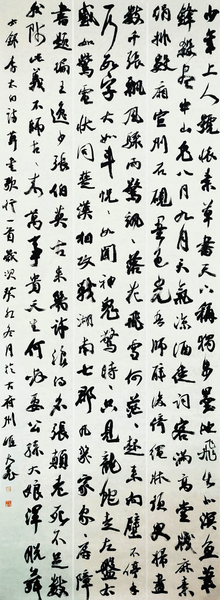 少年上人號懷素草書天下稱獨步墨池飛出北溟魚筆
鋒殺盡中山兔八月九月天氣涼酒徒詞客滿高堂牋麻素
絹排數廂宣州石硯墨色光吾師醉後倚繩床須臾掃盡
數千張飄風驟雨驚颯颯落花飛雪何茫茫起來向壁不停手
一行數字大如斗怳怳如聞神鬼驚時時只見龍蛇走左盤右
蹙如驚電狀同楚漢相攻戰湖南七郡凡幾家家家屏障
書題遍王逸少張伯英古來幾許浪得名張顛老死不足數
我師此義不師古古來萬事貴天生何必要公孫大娘渾脫舞
錄李太白詩草書歌行一首歲次癸卯冬月於古